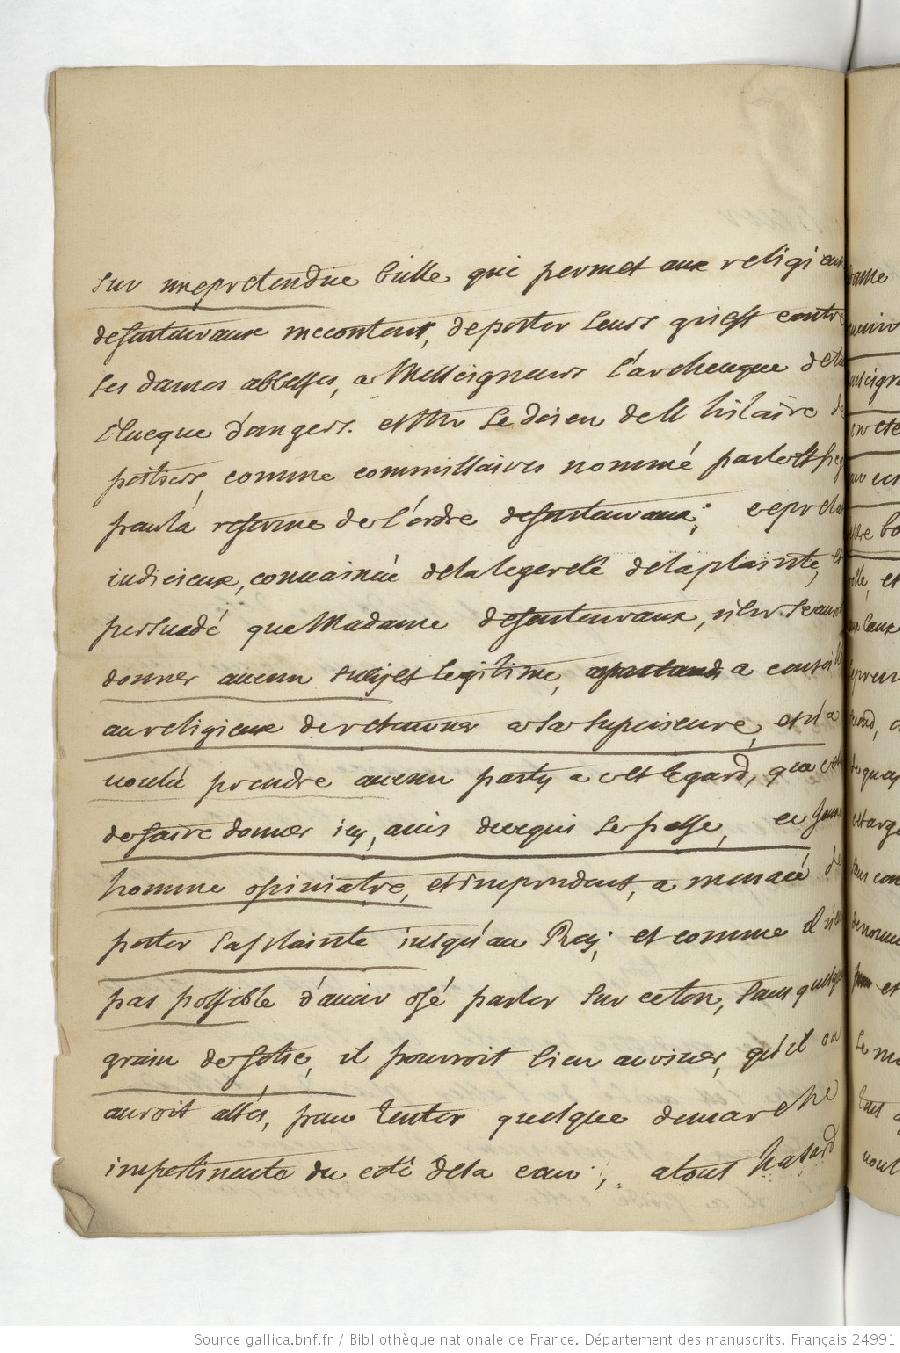 sur une pretendue bulle qui permet aux religieux
defontevraux mecontents, deporter leurs griefs contre
Les dames abbesses, a Messeigneurs l'archeveque de
L'evesque d'angers. et Mr le doien de St hilaire de
poitiers, comme commissaires nommé par le St
pour la reforme de l'ordre defontevraux; ce prelat
iudicieux, convaincüe de la legereté de la plainte,
persuadé que Madame defontevraux, n'en
donner aucun sujet Legitime, a conseillé
au religieux de retourner a sa superieure, et n'a
voulu prendre aucun party a cet Egard, que
de faire donner icy, avis de ce qui se passe, ce jeune
homme opiniatre, et imprudent, a menacé de
porter sa plainte iusqu'au Roy; et comme il n'est
pas possible d'avoir osé parler sur ce ton, sans quelque
grain de folie, il pourroit bien arriver, qu'il en
auroit assés, pour tenter quelque demarche
impertinente du coté de la cour; a tout hazard
Source gallica.bnf.fr / Bibliothèque nationale de France. Département des manuscrits. Français 24991